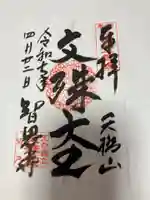 奉拝
天橋山
文殊大士
智恩寺
令和七年
四月廿二日